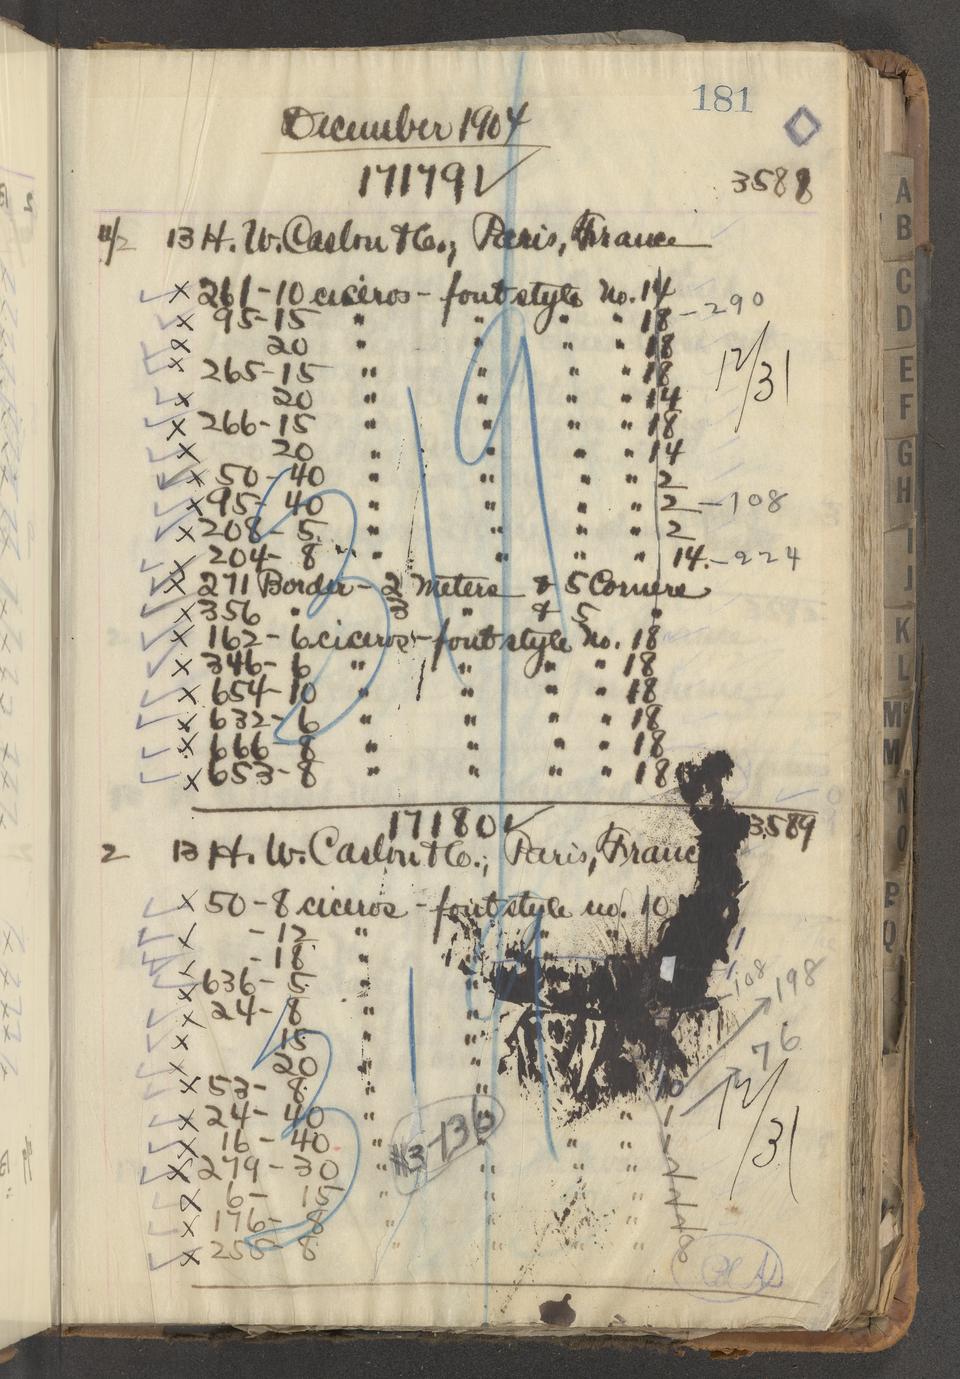 181
December 1904
171791 3588
13 H. W. Caslon & Co., Paris, France
× 261-10 ciceros - font style no. 14
× 95-15 " " " " 18 - 290
× 20 " " " 18
× 265-15 " " " " 18
12/31
× 20 " " " " 14
× 266-15 " " " " 18
× 20 " " " " 14
× 50-40 " " " " 2
× 95-40 " " " " 2 - 108
× 208-5 " " " " 2
× 204-8 " " " " 14 - 224
× 271 Border - 2 meters & 5 Corners
× 356 " 3 " & 5 "
× 162-6 ciceros - font style no. 18
× 346-6 " " " " 18
× 654-10 " " " " 18
× 632-6 " " " " 18
× 666-8 " " " " 18
× 653-8 " " " " 18
171801 3589
2 13 H. W. Caslon & Co., Paris, Franc
× 50-8 ciceros - font style no. 10
× -12 " " "
× -18 "
× 636-5 " 108
× 24-8 " 198
× 15 "
× 20 " 76
× 53-8 " " 10
× 24-40 " " " 1
12/31
× 16-40 " " " 1
#3-136
× 279-30 " " " "
× 6-15 " " " "
× 176-8 " " " "
× 255-8 " " " "
A
B
C
D
E
F
G
H
I
J
K
L
M
M
N
O
P
Q